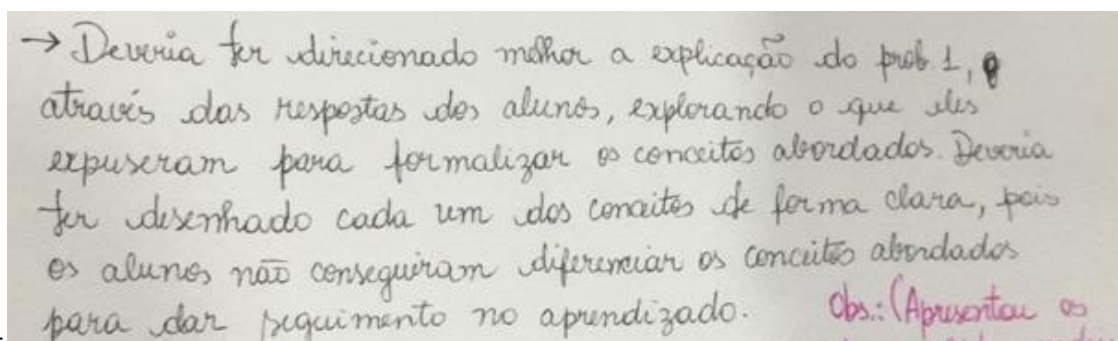 → Deveria ter direcionado melhor a explicação do prob 1,
através das respostas dos alunos, explorando o que eles
expuseram para formalizar os conceitos abordados. Deveria
ter desenhado cada um dos conceitos de forma clara, pois
os alunos não conseguiram diferenciar os conceitos abordados
para dar seguimento no aprendizado. Obs.: (Apresentou os